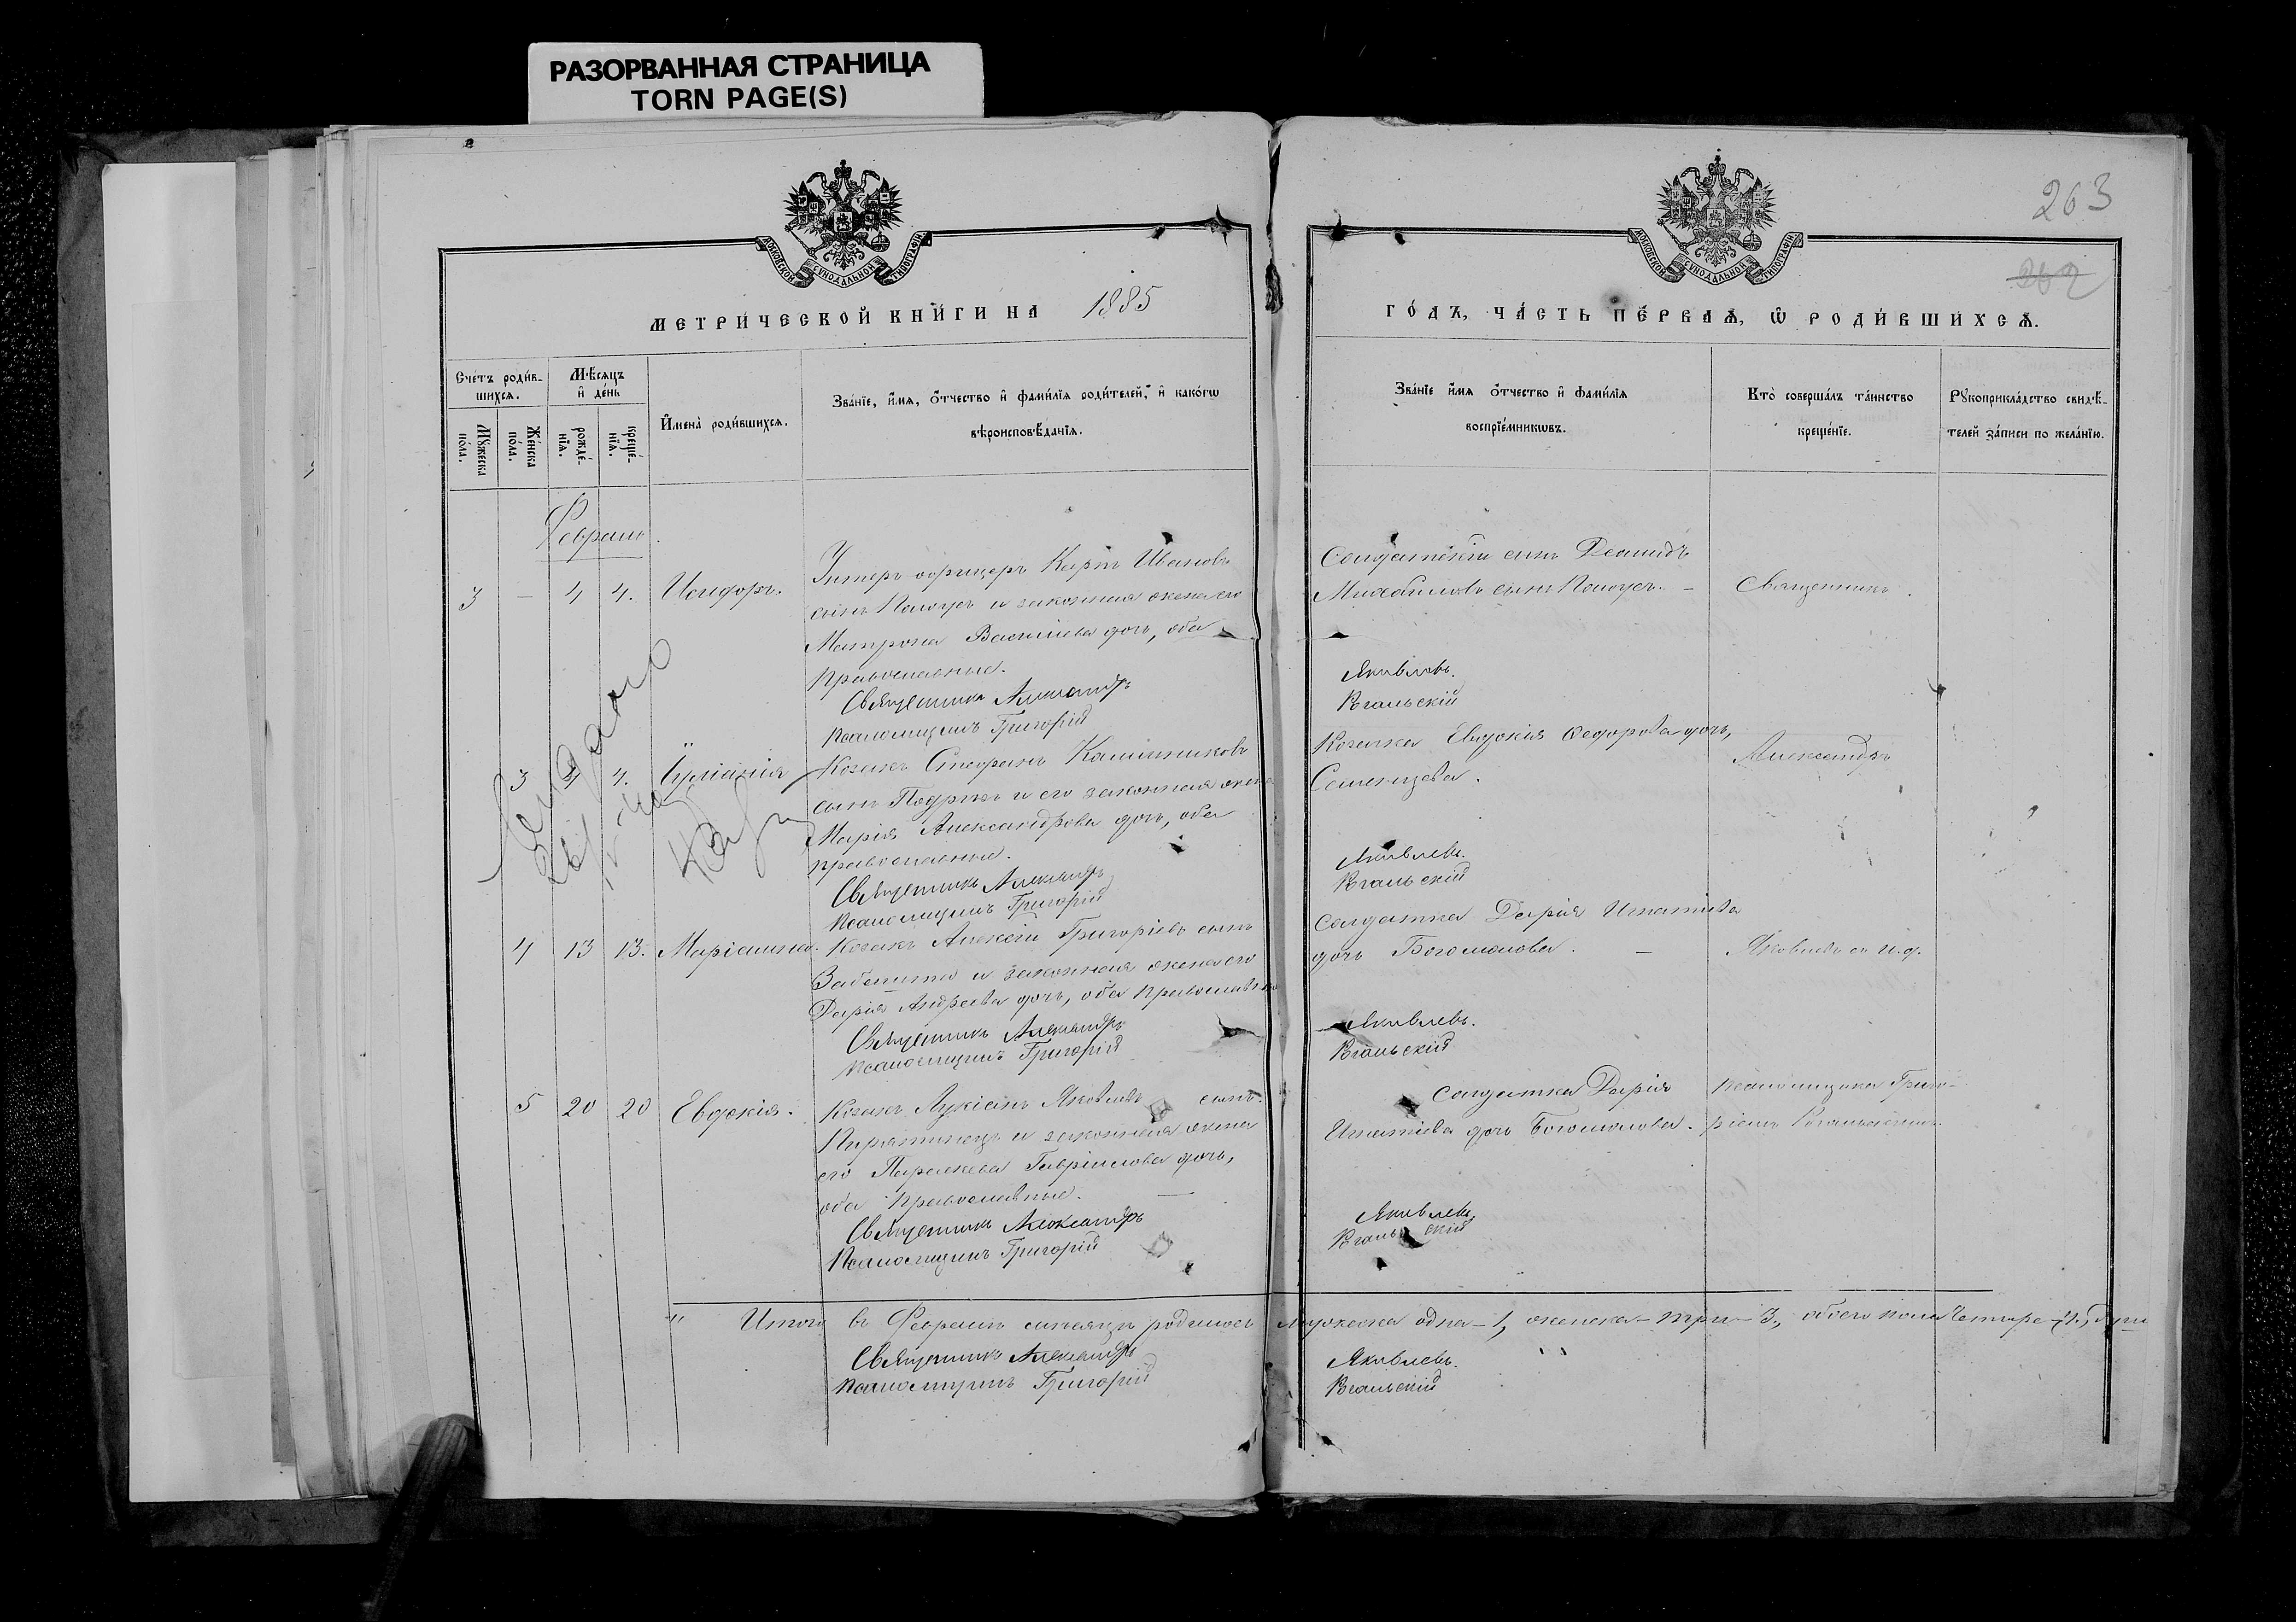 РАЗОРВАННАЯ СТРАНИЦА
TORN PAGE(S)
263
262
МОСКОВСКОЙ СѴНОДАЛЬНОЙ ТИПОГРАФІИ
МОСКОВСКОЙ СѴНОДАЛЬНОЙ ТИПОГРАФІИ
МЕТРИ́ЧЕСКОЙ КНИ́ГИ НА 1885
ГО́ДЪ, ЧА́СТЬ ПЕ́РВАѦ, Ѿ РОДИ́ВШИХСѦ.
Сче́тъ роди́в-
шихсѧ.
Мꙋжеска по́ла.
Же́нска по́ла.
Мѣ́сяцъ
и҆ де́нь
рожде́-
нїѧ.
креще́-
нїѧ.
И҆мена̀ роди́вшихсѧ.
Зва́нїе, и҆́мѧ, о҆́тчество и҆ фами́лїѧ роди́телей, и҆ како́гѡ
вѣроисповѣ́данїѧ.
Зва́нїе и҆́мѧ о҆́тчество и҆ фами́лїѧ
воспрїе́мникѡвъ.
Кто̀ соверша́лъ та́инство
креще́нїе.
Рꙋкоприкла́дство свидѣ́-
телей за́писи по жела́нїю.
Февраль
3 – 4 4. Исидоръ.
Унтеръ офицеръ Карпъ Ивановъ
сынъ и законная жена его
Матрона Васильева дочь, оба
православные.
Священникъ Александръ
Псаломщикъ Григорій
Солдатскій сынъ Леонидъ
Михайловъ сынъ
Священникъ
Яковлевъ.
3 4 4. Іуліанія
Козакъ Стефанъ Калинниковъ
сынъ и его законная жена
Марія Александрова дочь, оба
православные.
Священникъ Александръ
Псаломщикъ Григорій
Козачка Евдокія Федорова дочь,
Семенцева.
Александръ
Яковлевъ.
4 13 13. Маріамна.
Козакъ Алексій Григоріевъ сынъ
и законная жена его
Дарія Андреева дочь, оба православные
Священникъ Александръ
Псаломщикъ Григорій
Солдатка Дарія Игнатіева
дочь Богомолова. –
Яковлевъ съ и. д.
Яковлевъ.
5 20 20 Евдокія.
Козакъ Лукіанъ Яковлевъ сынъ
Пирятинецъ и законная жена
его Параскева Гавріилова дочь,
оба православные. –
Священникъ Александръ
Псаломщикъ Григорій
Солдатка Дарія
Игнатіева дочь Богомолова.
псаломщика Григо-
ріемъ
Яковлевъ
Итого въ Февралѣ мѣсяцѣ родилось мужеска одна – 1, женска – три – 3, обоего пола четыре – 4, души
Священникъ Александръ
Псаломщикъ Григорій
Яковлевъ.